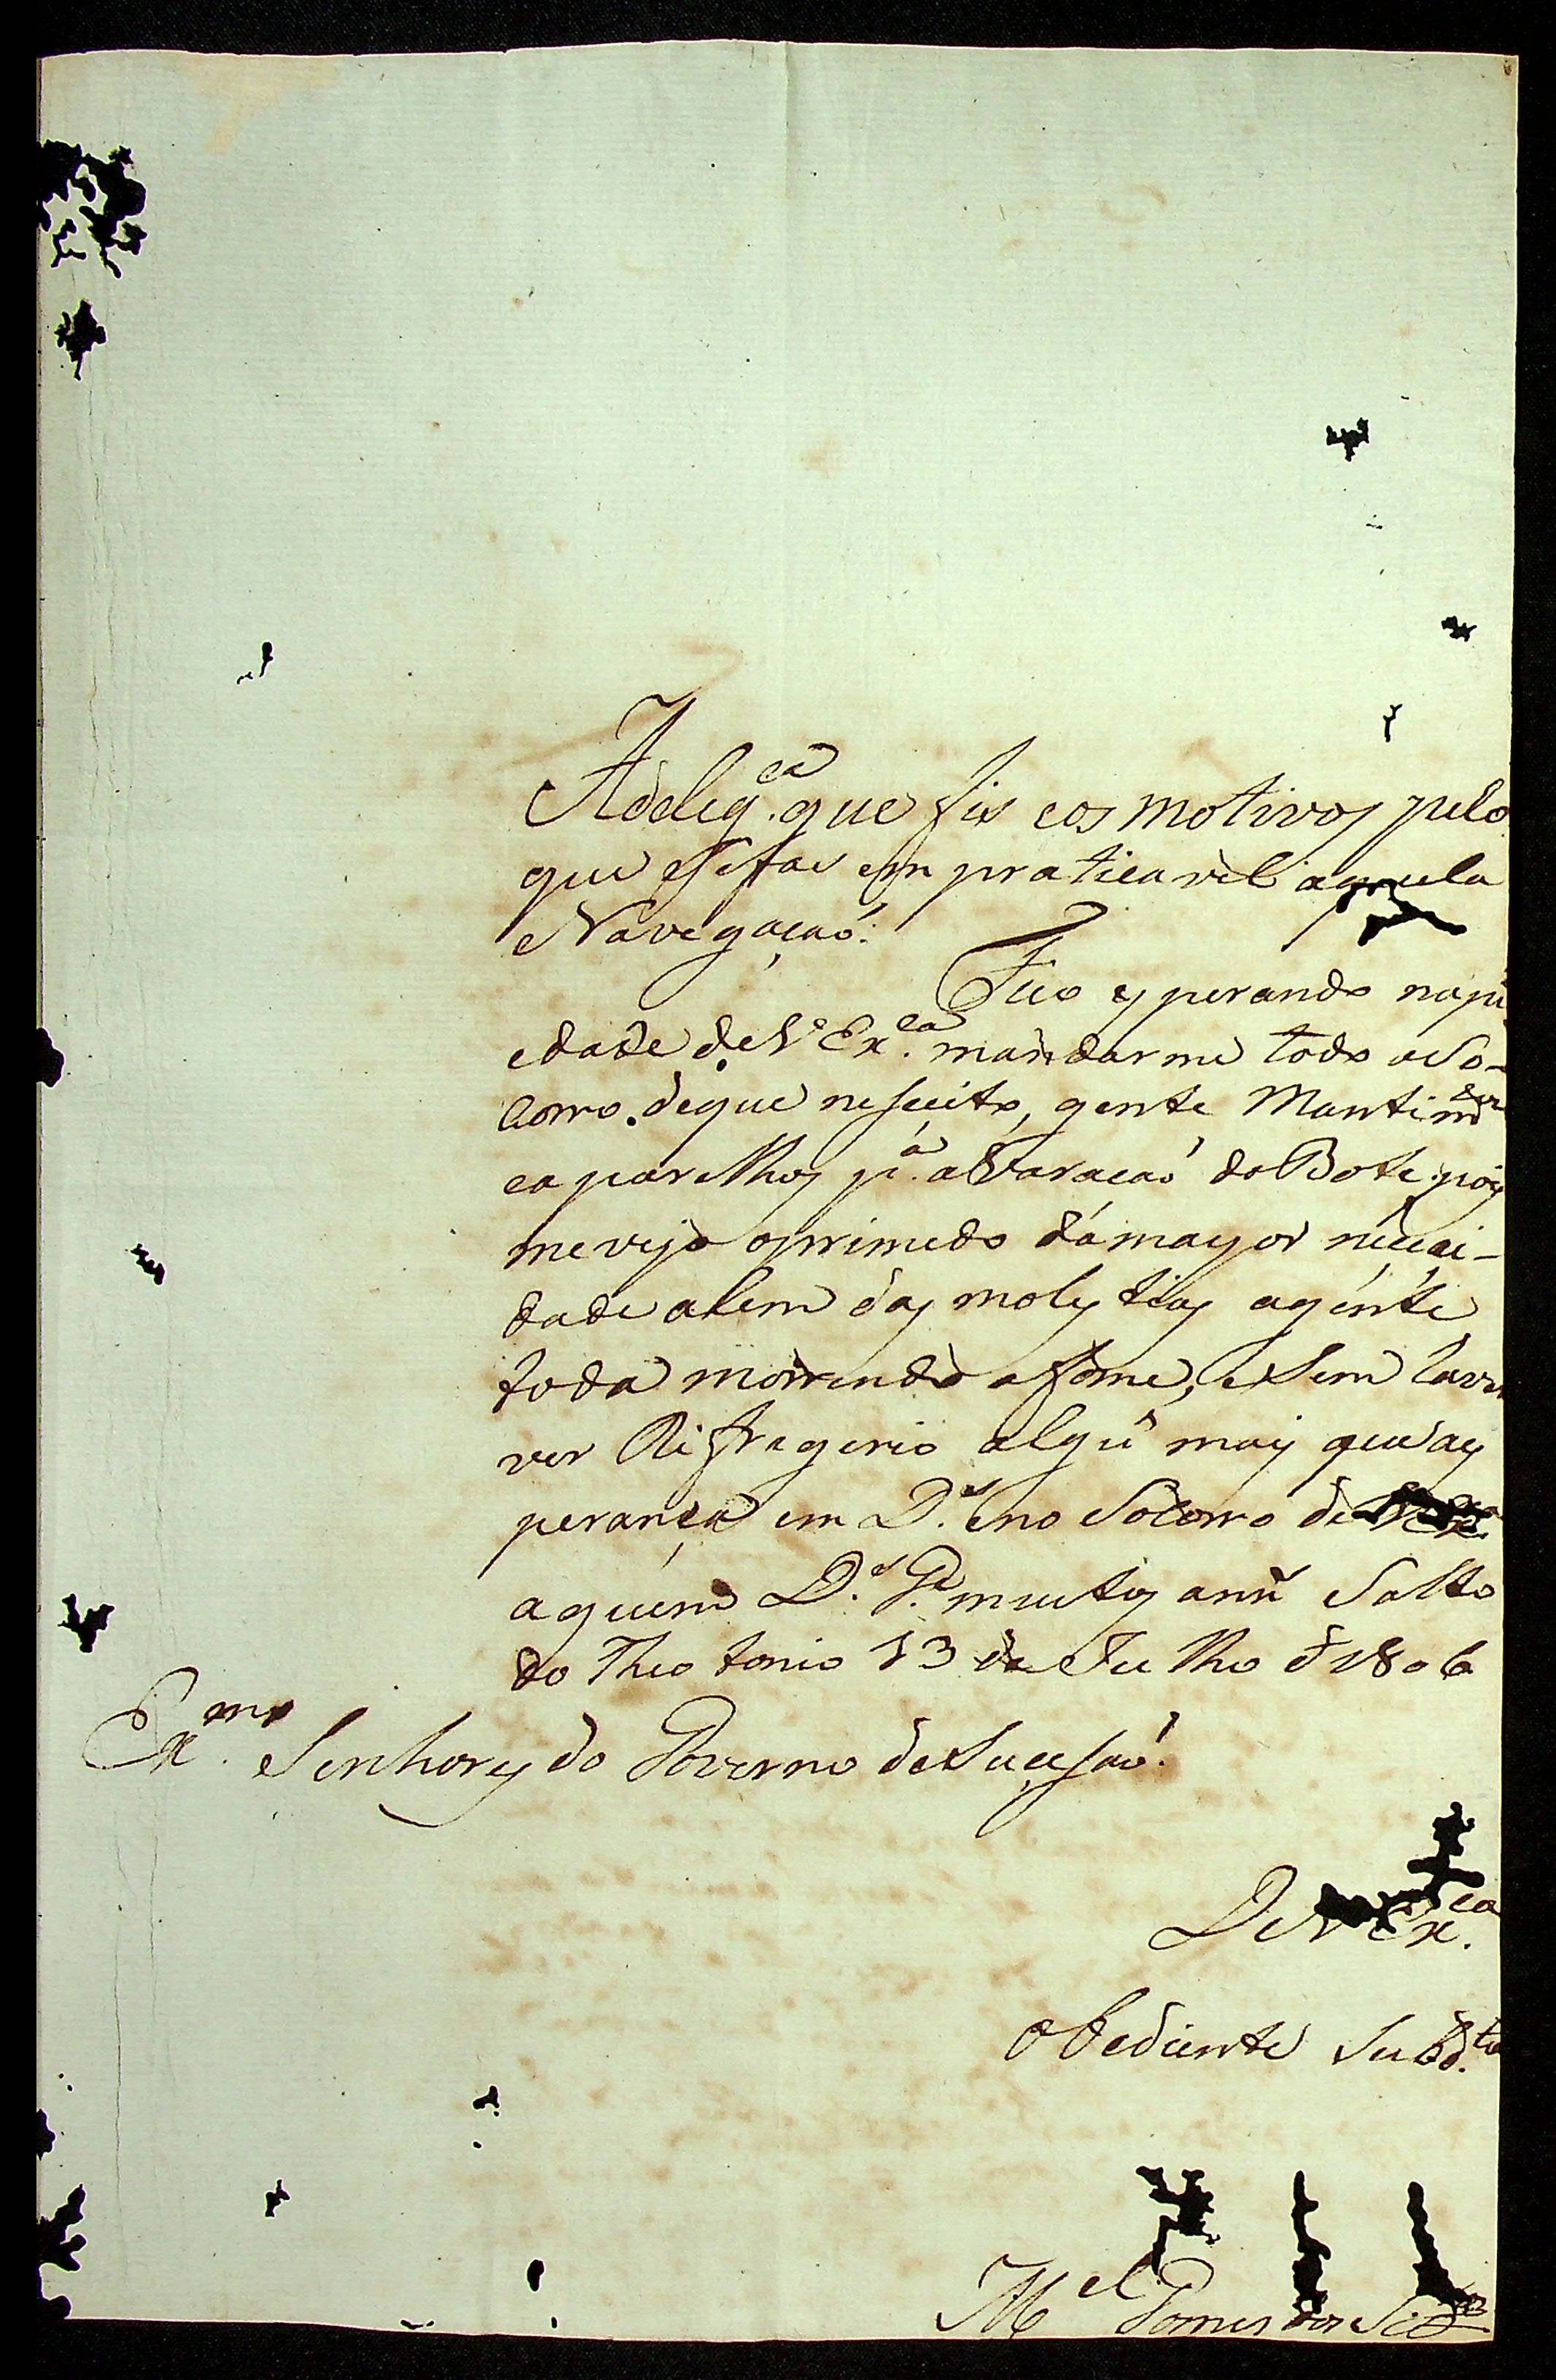 Adelig.ca que fis eos motivos pelo
que esefas em praticavel aquela
Navegação:
Fico esperando napi
edade deV.Ex.ca mandarme todo oSo-
corro. deque nesecito, gente Mantim.tos
eaparelhos p.a aVaração do Bote pois
mevejo oprimedo dámayor nececi-
dade alem das molestias agénte
toda morrendo afome, esem
ver Refregerio algũ mais queaes
perança em D.s eno Socorro de V.Ex.
aquem D.s G.e muitos ann Salto
do Theotonio 13 de Julho d 1806
Ex.mos Senhores do Governo deSucesão.
DeV Ex.ca
obediente Subd.to
M.el Gomes dos S.tos